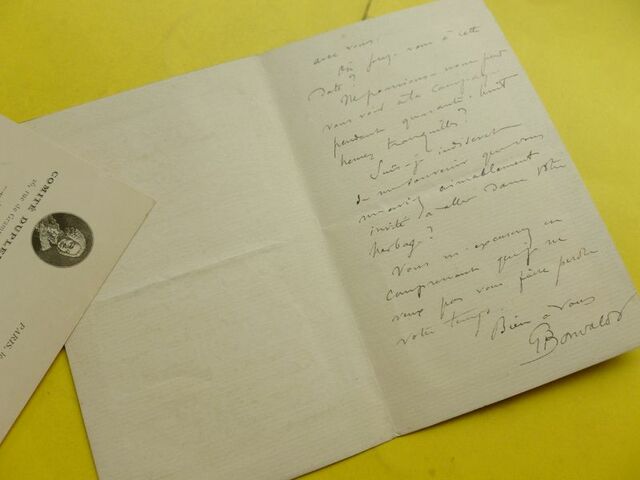 avec vous.
Où serez-vous à cette
date ?
Ne pourrions-nous pas
vous voir à la campagne
pendant quarante-huit
heures tranquilles ?
Suis-je indiscret
de me souvenir que vous
m'aviez aimablement
invité à aller dans votre
herbage ?
Vous m'excuserez en
comprenant que je ne
veux pas vous faire perdre
votre temps.
Bien à vous
GBonvalot
COMITÉ DUPLEI
rue de Gramm
PARIS, le